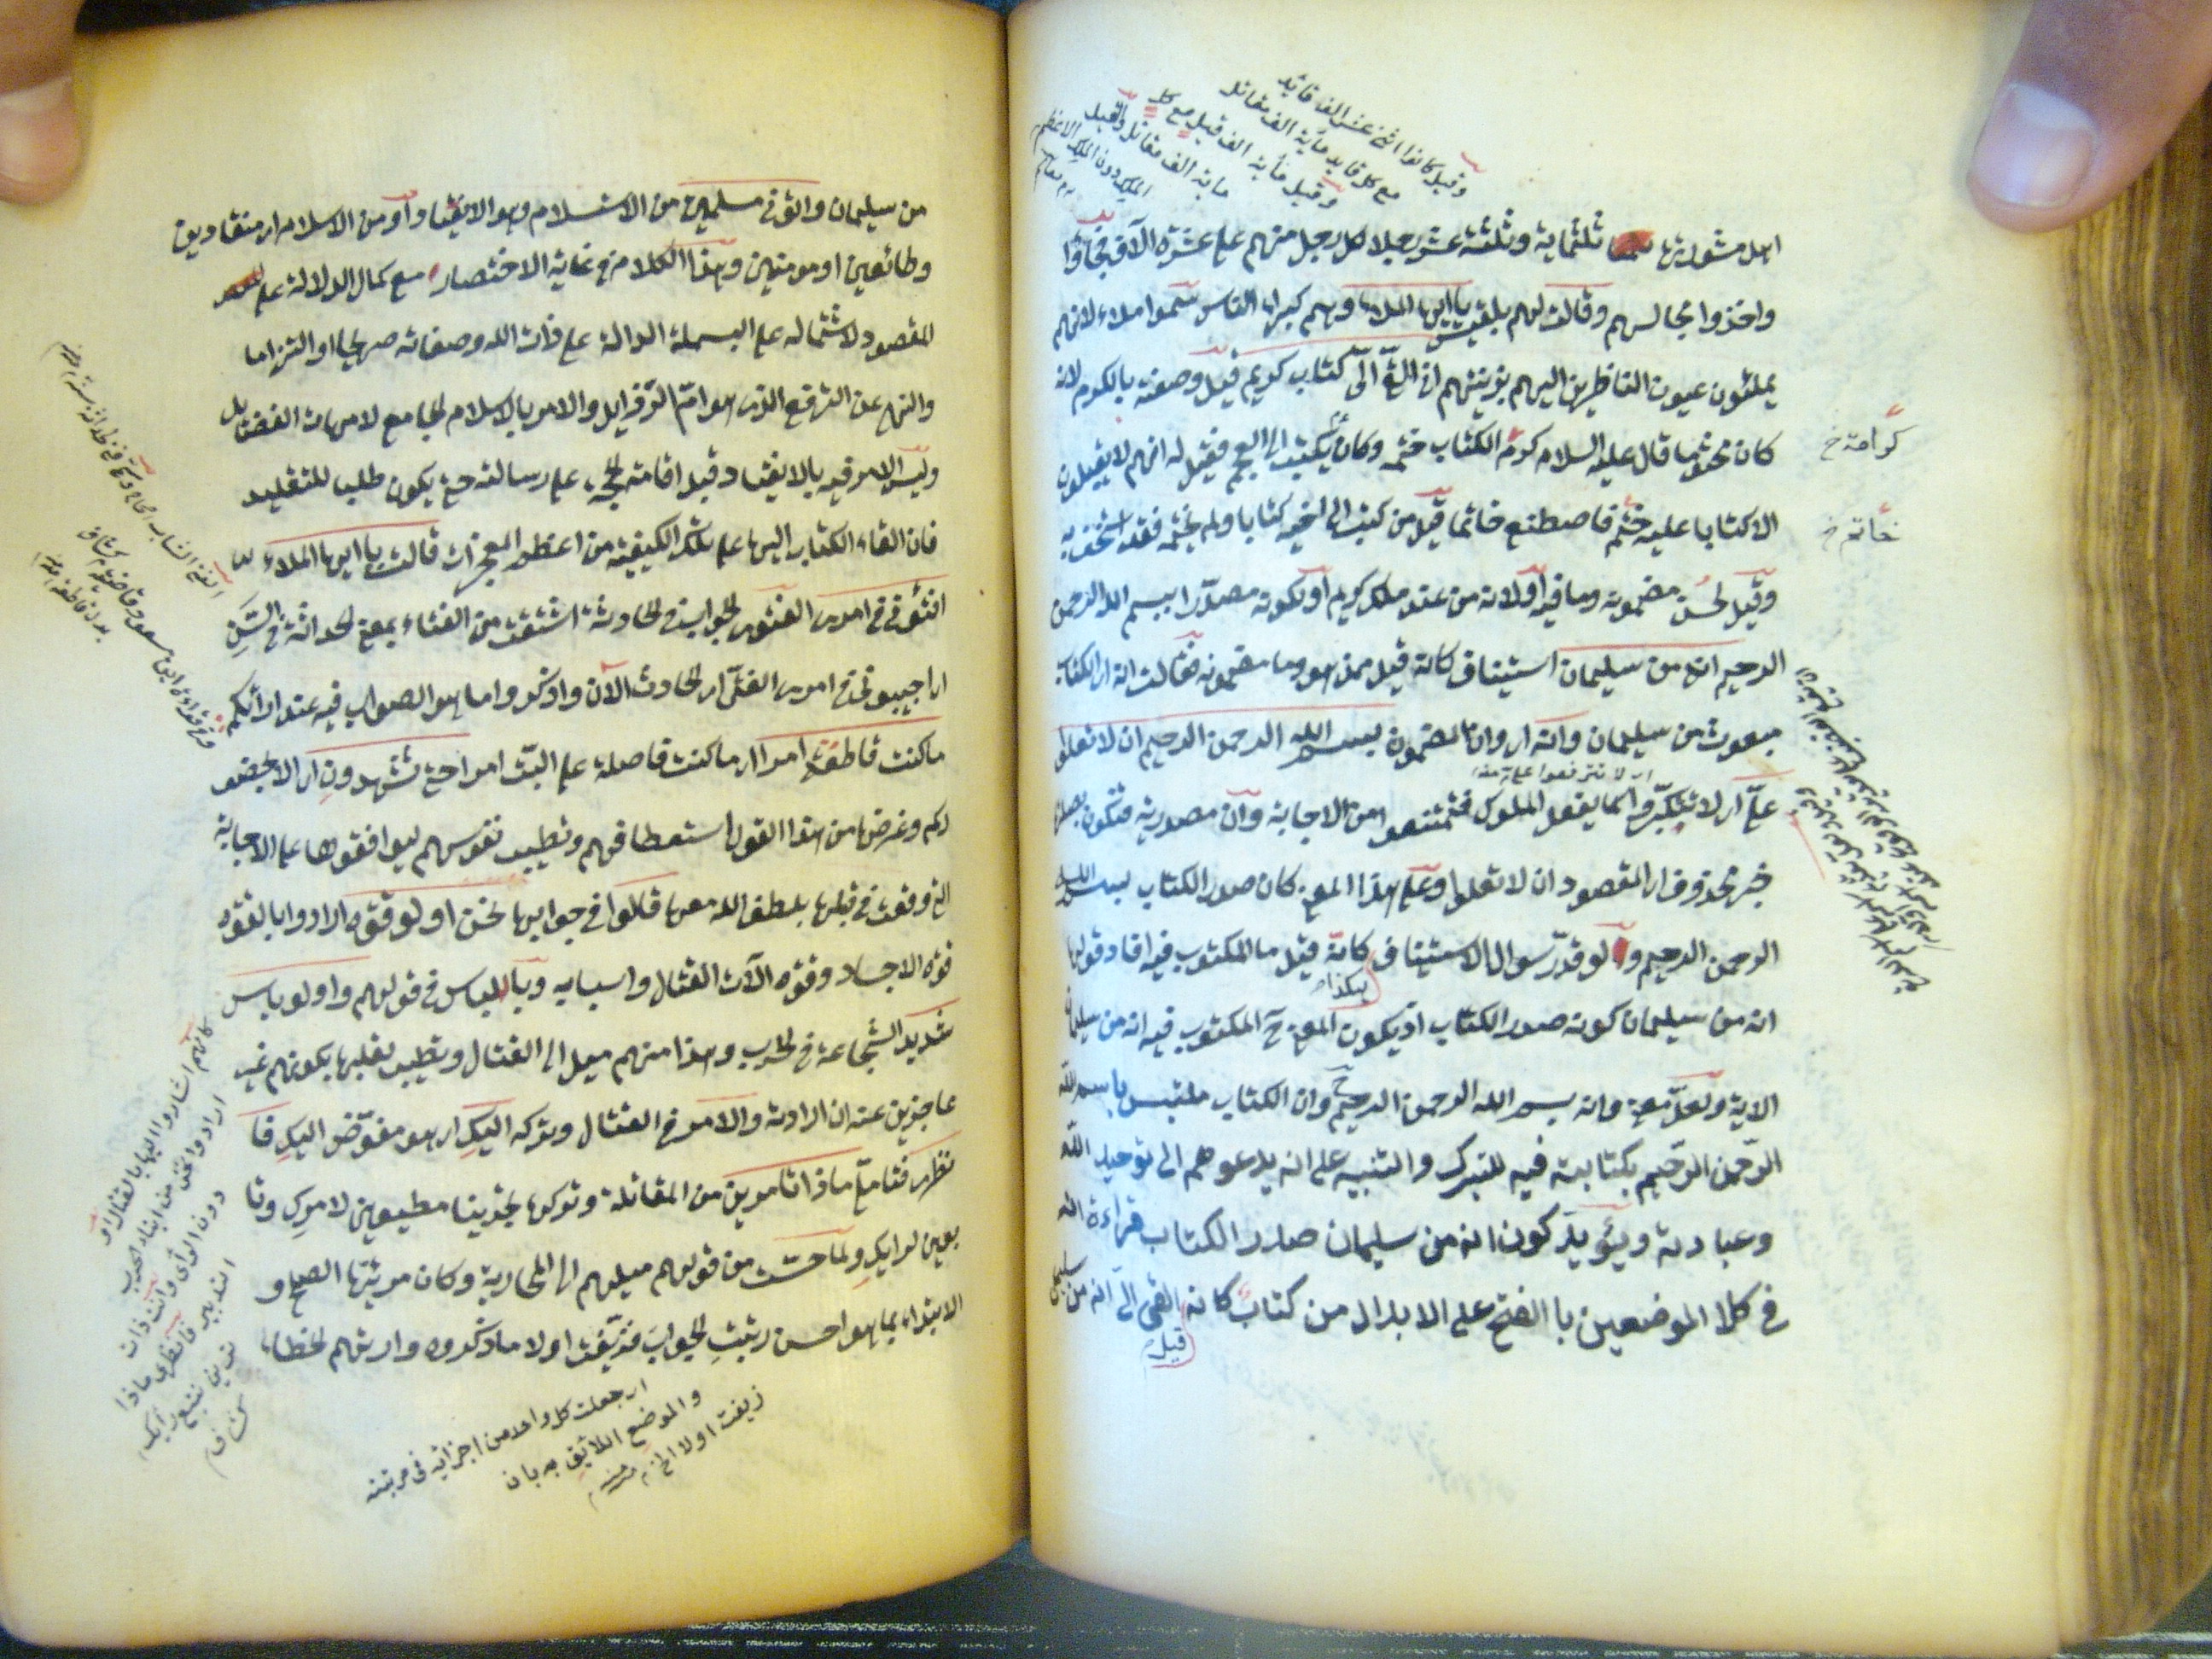 وقيل كانوا اثنى عشر الف قايد
مع كل قايد مأية الف مقاتل
وقيل مأية الف قيل مع كل
ماية الف مقاتل والقيل
الملك دون الملك الاعظم
اهل مشورتها ثلثماية وثلثة عشر رجلا كل رجل منهم على عشرة الآف فجاؤا
واخذوا مجالسهم وقالت لهم بلقيس يا ايها الملاء وهم كبراء الناس سموا ملاء لانهم
يملئون عيون الناظرين اليهم بزينتهم انى القى الىّ كتاب كريم قيل وصفته بالكرم لانه
كان مختوما قال عليه السلام كرم الكتاب ختمه وكان يكتب الى العجم فقيل له انهم لا يقبلون
كرامة خ
الا كتابا عليه ختم فاصطنع خاتما قيل من كتب الى اخيه كتابا ولم يختمه فقد استخف به
خاتم خ
وقيل لحسن مضمونه وما فيه او لانه من عند ملك كريم او لكونه مصدّرا ببسم الله الرحمن
الرحيم انه من سليمان استيناف كانه قيل ممن هو وما مضمونه فقالت انه اى الكتاب
مبعوث من سليمان وانه اى وان المضمون بسم الله الرحمن الرحيم ان لا تعلوا
اى لا تترفعوا على منه
علىّ اى لا تتكبّروا كما يفعل الملوك فتمتنعوا من الاجابة وان مصدرية فتكون بصلتها
خبر محذوف اى المقصود ان لا تعلوا وعلى هذا المعنى كان صدر الكتاب بسم الله
الرحمن الرحيم ولو قدّر سوال الاستيناف كانه قيل ما المكتوب فيه افاد قولها
هكذا
انه من سليمان كونه صدر الكتاب اذ يكون المعنى ح المكتوب فيه انه من سليمان
الاية ولعلّ معنى وانه بسم الله الرحمن الرحيم وان الكتاب ملتبس باسم الله
الرّحمن الرّحيم بكتابته فيه للتبرك والتنبيه على انه يدعوهم الى توحيد الله
وعبادته ويؤيد كون انه من سليمان صدر الكتاب قراءة انه
فى كلا الموضعين بالفتح على الابدال من كتاب كانه القى الىّ انه من سليمان
قيل
من سليمان وائتونى مسلمين من الاستسلام وهو الانقياد او من الاسلام اى منقادين
وطائعين او مومنين وهذا الكلام فى غاية الاختصار مع كمال الدلالة على
المقصود لاشتماله على البسملة الدالة على ذات الله وصفاته صريحا او التزاما
والنهى عن الترفع الذى هو امّ الرّذايل والامر بالاسلام الجامع لامهات الفضايل
وليس الامر فيه بالانقياد قبل اقامة الحجة على رسالته حتى يكون طلبا للتقليد
فان القاء الكتاب اليها على تلك الكيفية من اعظم المعجزات قالت يا ايها الملاء
افتونى فى امرى الفتوى الجواب فى الحادثة اشتقت من الفتاء بمعنى الحداثة فى السّنِ
اى اجيبونى فى امرى الفتىّ اى الحادث الآن واذكروا ما هو الصواب فيه عند ارائكم
ما كنت قاطعة امرا اى ما كنت فاصلة على البتّ امرا حتى تشهدون اى الا بحضو
ركم وغرضها من هذا القول استعطافهم وتطييب نفوسهم ليوافقوها على الاجابة
التى وقعت فى قبلها بلطف الله معها قالوا فى جوابها نحن اولو قوة ارادوا بالقوة
قوة الاجساد وقوة الآت القتال واسبابه وبالباس فى قولهم واولو باس
شديد الشجاعة فى الحرب وهذا منهم ميل الى القتال وتطييب لقلبها بكونهم غير
عاجزين عنه ان ارادته والامر فى القتال وتركه اليكِ اى هو مفوّض اليكِ فا
نظرى فتاملى ماذا تامرين من المقاتلة وتركها تجدينا مطيعين لامركِ وتا
بعين لرايكِ ولما حست من قولهم ميلهم الى المحاربة وكان مرئيّها الصلح و
الابتداء بما هو احسن رتبت الجواب فزيّفت اولا ما ذكروه وارتهم الخطاء
وفى قراءة ابن مسعود قاضية كشاف
بدل قاطعة منه
كانهم اشاروا اليها بالقتال او
ارادوا نحن من ابناء الحرب
دون الرأى وانت ذات
التدبير فانظرى ماذا
ترين نتبع رأيك
كشاف
اى جعلت كل واحد من اجزائه فى مرتبته
والموضع اللائق به بان
زيفت اولا الخ منه